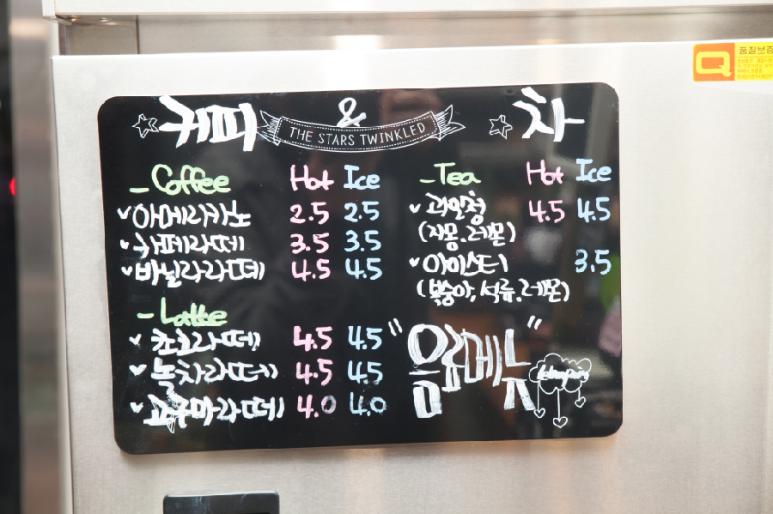 커피 & 차
THE STARS TWINKLED
- Coffee Hot Ice
아메리카노 2.5 2.5
카페라떼 3.5 3.5
바닐라라떼 4.5 4.5
- Latte
초코라떼 4.5 4.5
녹차라떼 4.5 4.5
고구마라떼 4.0 4.0
- Tea Hot Ice
과일청 4.5 4.5
(자몽.레몬)
아이스티 3.5
(복숭아,석류.레몬)
"음료메뉴"
Q 품질보증